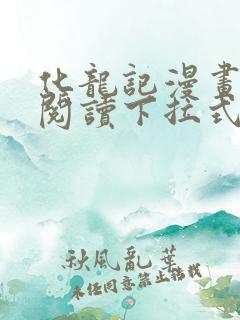 化龍記漫畫
閱讀下拉式
秋風亂葉
未经同意禁止转载